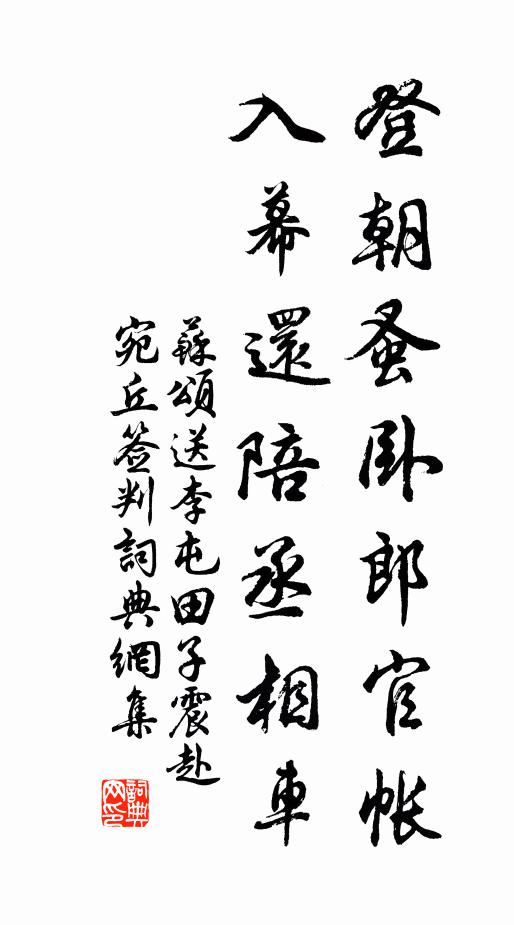 登朝蚤卧郎官帐
入幕還陪丞相車
蘇頌送李屯田子震赴
宛丘签判詞典網集
詞典网印